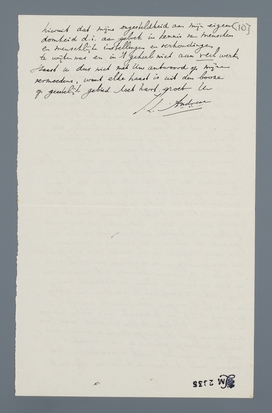 hieruit dat mijne ongesteldheid aan mijn eigen [10]
domheid d.i. aan gebrek in kennis van menschen
en menschelijke instellingen en verhoudingen
te wijten was en in 't geheel niet aan veel werk
Haast u dus niet met Uw antwoord op mijne
want elke haast is uit den booze
op gebied. Met hart. groet Uw
L. Andreae
M 2235